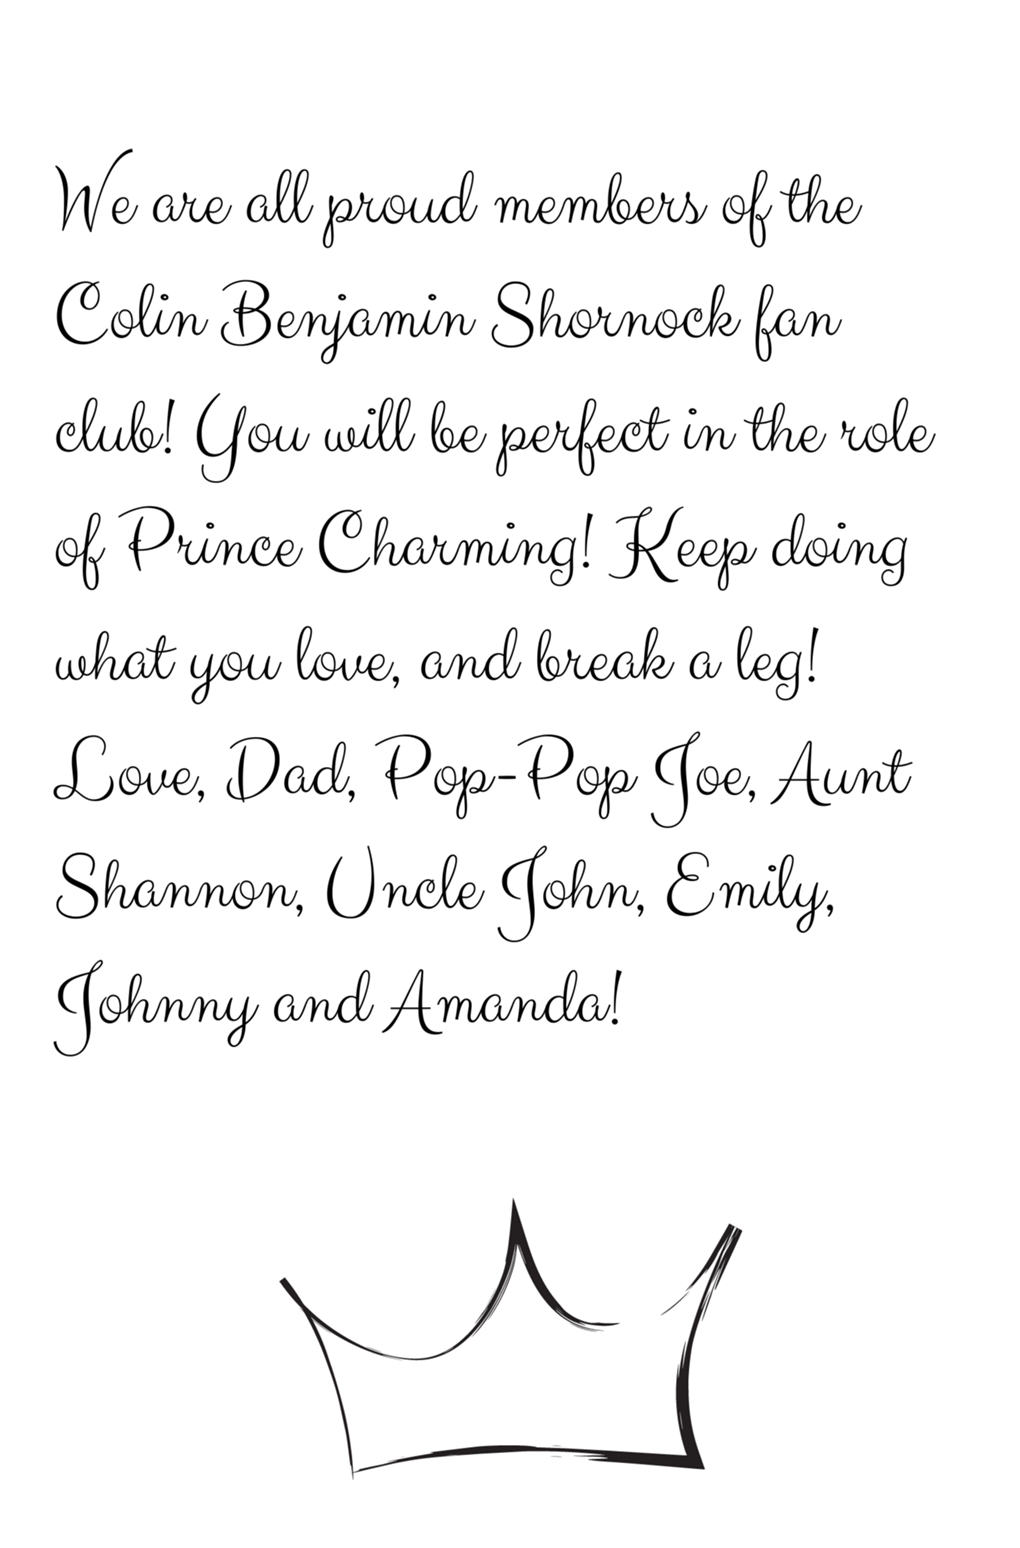 We are all proud members of the
Colin Benjamin Shornock fan
club! You will be perfect in the role
of Prince Charming! Keep doing
what you love, and break a leg!
Love, Dad, Pop-Pop Joe, Aunt
Shannon, Uncle John, Emily,
Johnny and Amanda!